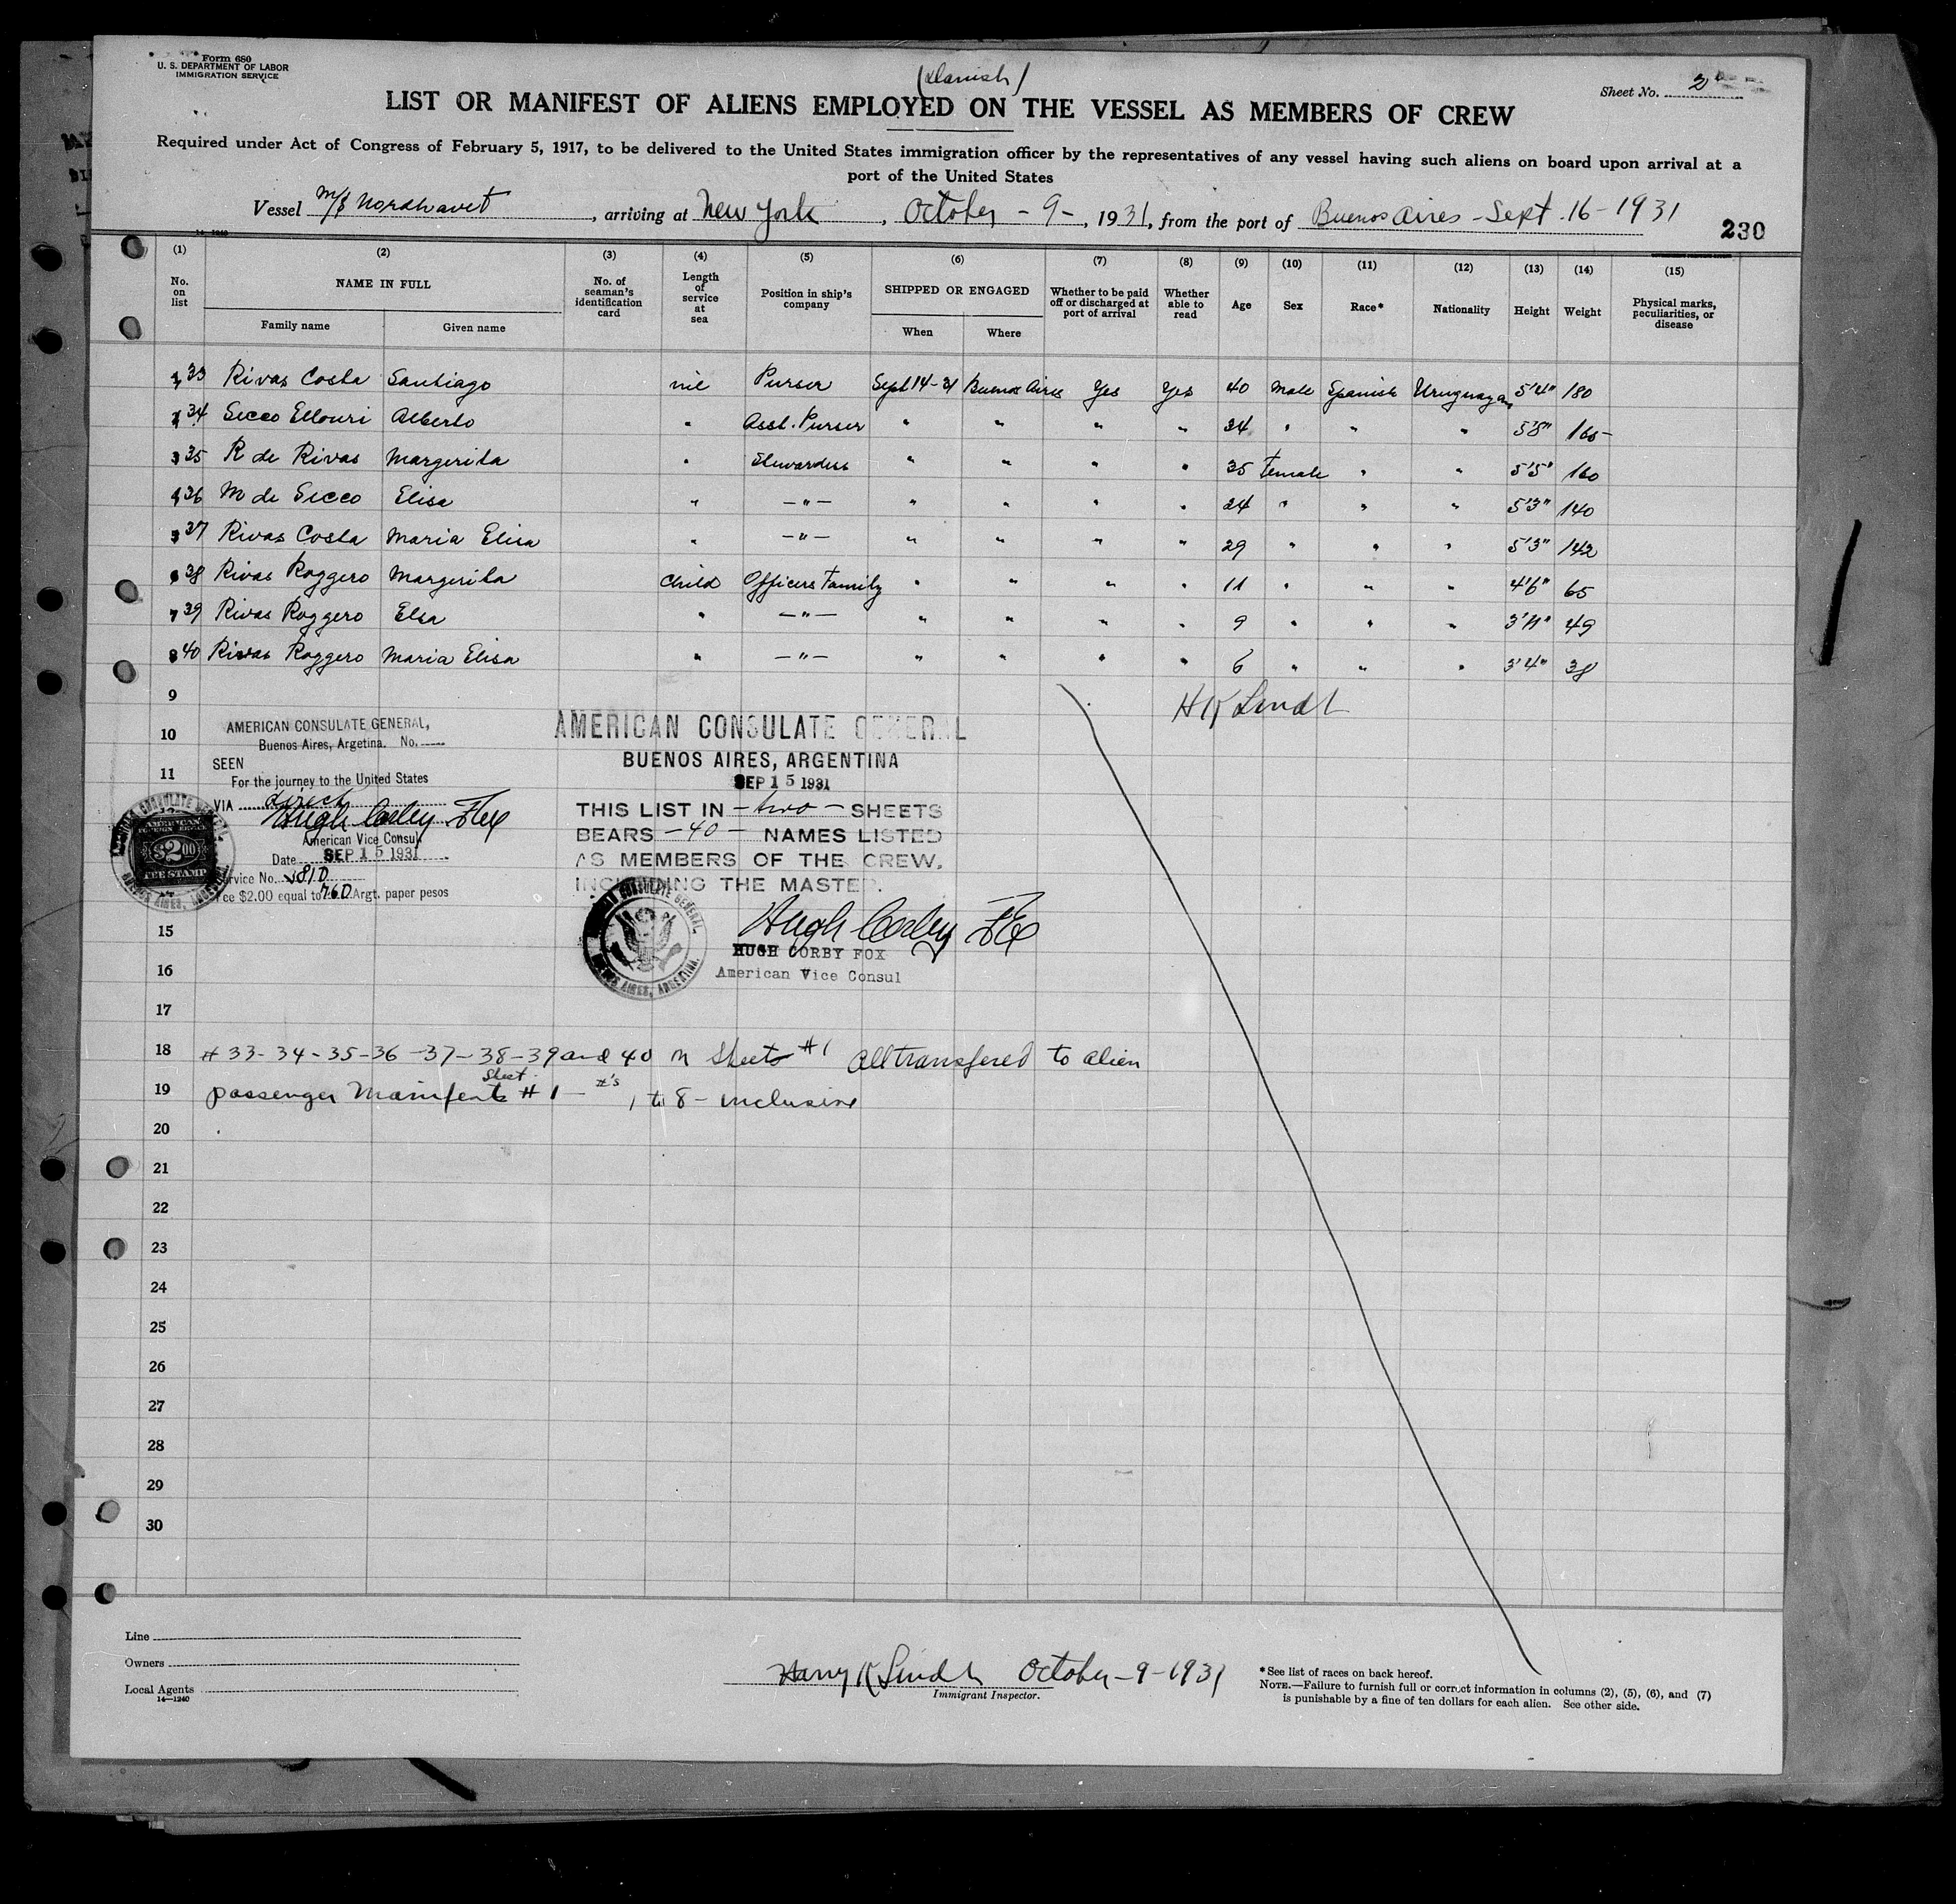 Form 680
U. S. DEPARTMENT OF LABOR
IMMIGRATION SERVICE
(Danish)
Sheet No. 2
LIST OR MANIFEST OF ALIENS EMPLOYED ON THE VESSEL AS MEMBERS OF CREW
Required under Act of Congress of February 5, 1917, to be delivered to the United States immigration officer by the representatives of any vessel having such aliens on board upon arrival at a
port of the United States
Vessel M/S Nordhavet, arriving at New York, October - 9 -, 1931, from the port of Buenos Aires - Sept. 16 - 1931
230
14-1240
(1) (2) (3) (4) (5) (6) (7) (8) (9) (10) (11) (12) (13) (14) (15)
No. on list NAME IN FULL No. of seaman's identification card Length of service at sea Position in ship's company SHIPPED OR ENGAGED Whether to be paid off or discharged at port of arrival Whether able to read Age Sex Race* Nationality Height Weight Physical marks, peculiarities, or disease
Family name Given name When Where
33 Rivas Costa Santiago nil Purser Sept 14-31 Buenos Aires Yes Yes 40 Male Spanish Uruguayan 5'4" 180
34 Secco Ellouri Alberto " Asst. Purser " " " " 24 " " " 5'8" 165-
35 R de Rivas Margerita " Stewardess " " " " 35 Female " " 5'5" 160
36 M de Secco Elisa " -"- " " " " 24 " " " 5'3" 140
37 Rivas Costa Maria Elisa " -"- " " " " 29 " " " 5'3" 142
38 Rivas Roggero Margerita Child Officers Family " " " " 11 " " " 4'6" 65
39 Rivas Roggero Elsa " -"- " " " " 9 " " " 3'11" 49
40 Rivas Roggero Maria Elisa " -"- " " " " 6 " " " 3'4" 38
9
H K Lindt
10
11
AMERICAN CONSULATE GENERAL,
Buenos Aires, Argetina. No.
SEEN
For the journey to the United States
VIA direct
Hugh Corby Fox
American Vice Consul
Date SEP 15 1931
Service No. 5810
Fee $2.00 equal to 7.60 Argt. paper pesos
AMERICAN
$2.00
FEE STAMP
AMERICAN CONSULATE GENERAL
BUENOS AIRES, ARGENTINA
SEP 15 1931
THIS LIST IN - two - SHEETS
BEARS - 40 - NAMES LISTED
AS MEMBERS OF THE CREW,
INCLUDING THE MASTER.
Hugh Corby Fox
HUGH CORBY FOX
American Vice Consul
15
16
17
18 # 33-34-35-36-37-38-39 and 40 on Sheets #1 all transfered to alien
19 passenger Manifests Sheet #1 - #'s 1 to 8 - inclusive
20
21
22
23
24
25
26
27
28
29
30
Line
Owners
Local Agents
14—1240
Harry K Lindt October - 9 - 1931
Immigrant Inspector.
*See list of races on back hereof.
NOTE.—Failure to furnish full or correct information in columns (2), (5), (6), and (7)
is punishable by a fine of ten dollars for each alien. See other side.